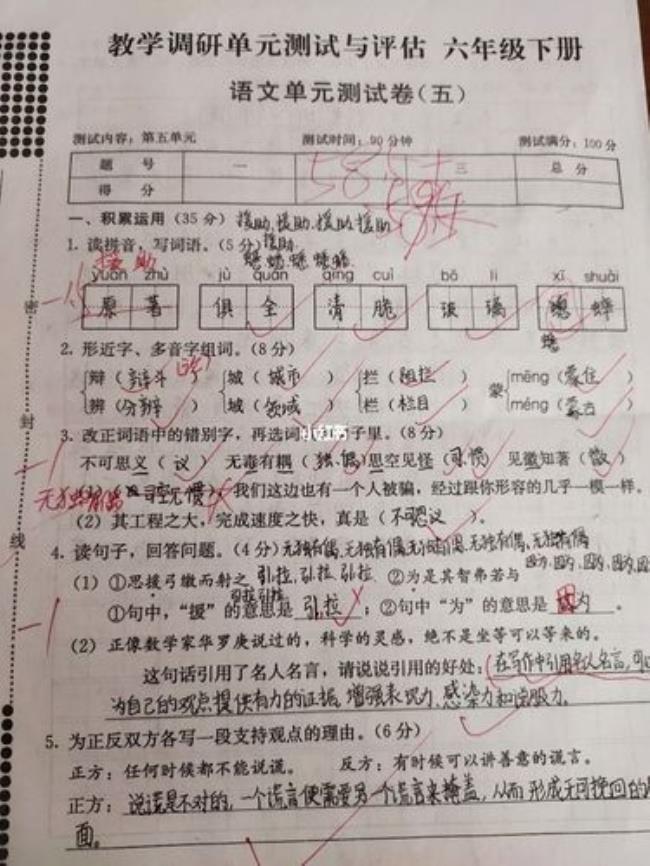 教学调研单元测试与评估 六年级下册
语文单元测试卷(五)
测试内容:第五单元 测试时间:90分钟 测试满分:100分
题 号 一 三 总 分
得 分
一、积累运用(35分) 援助、援助、援助、援助
1. 读拼音,写词语。(5分) 援助
蟋蟀 蟋蟀
援助
yuán zhù jù quán qīng cuì bō li xī shuài
原著 俱全 清脆 玻璃 蟋蟀
蟋
2. 形近字、多音字组词。(8分)
辩( ) 城(城市) 拦(阻拦) 蒙 mēng(蒙住)
辨(分辨) 域(领域) 栏(栏目) méng(蒙古)
3. 改正词语中的错别字,再选词 子里。(8分)
小红书
不可思义(议) 无毒有耦(独、偶) 思空见怪(司、惯) 见徽知著(微)
无独有偶
(1)(司空见惯),我们这边也有一个人被骗,经过跟你形容的几乎一模一样。
(2)其工程之大,完成速度之快,真是(不可议)。
4. 读句子,回答问题。(4分) 无独有偶、无独有偶、无独有偶、无独有偶、无独有偶
(1)①思援弓缴而射之 引拉、引拉、引拉 ②为是其智弗若与
引拉引拉
①句中,“援”的意思是 引拉 ;②句中“为”的意思是 因为 。
(2)正像数学家华罗庚说过的,科学的灵感,绝不是坐等可以等来的。
这句话引用了名人名言,请说说引用的好处:(在写作中引用名人名言,可
为自己的观点提供有力的证据,增强表现力、感染力和说服力。
5. 为正反双方各写一段支持观点的理由。(6分)
正方:任何时候都不能说谎。 反方:有时候可以讲善意的谎言。
正方:说谎是不对的,一个谎言便需要另一个谎言来掩盖,从而形成无可挽回的
面。